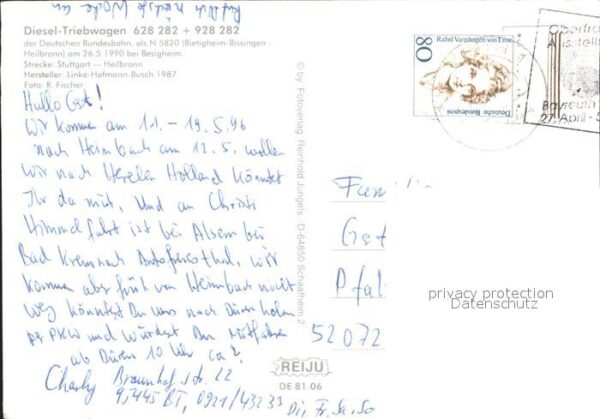 Ruf Dich nächste Woche an
Diesel-Triebwagen 628 282 + 928 282
der Deutschen Bundesbahn, als N 5820 (Bietigheim-Bissingen -
Heilbronn) am 26.5.1990 bei Besigheim.
Strecke: Stuttgart — Heilbronn
Hersteller: Linke-Hofmann-Busch 1987
Foto: R. Fischer
Hallo Gst!
Wir kommen am 11. - 19.5.96
nach Heimbach am 12.5. wollen
wir nach Holland könntet
Ihr da mit, Und an Christi
Himmelfahrt ist bei Alsenz bei
Bad Kreuznach wir
kommen aber früh von Heimbach nicht
weg könntest Du uns nach Düren holen
per PKW und würdest Du Mitfahren
ab Düren 10 Uhr ca?
Charly Braunhofstr. 22
95445 BT, 0921/43233 Di, Fr, Sa, So
© by Fotoverlag Reinhold Jungels · D-64850 Schaafheim 2
REIJU
DE 81.06
Rahel Varnhagen von Ense
80
Deutsche Bundespost
Oberfrä
Ausstell
Bayreuth
27. April - 5
Fam
Gst
Pfal
52072
privacy protection
Datenschutz